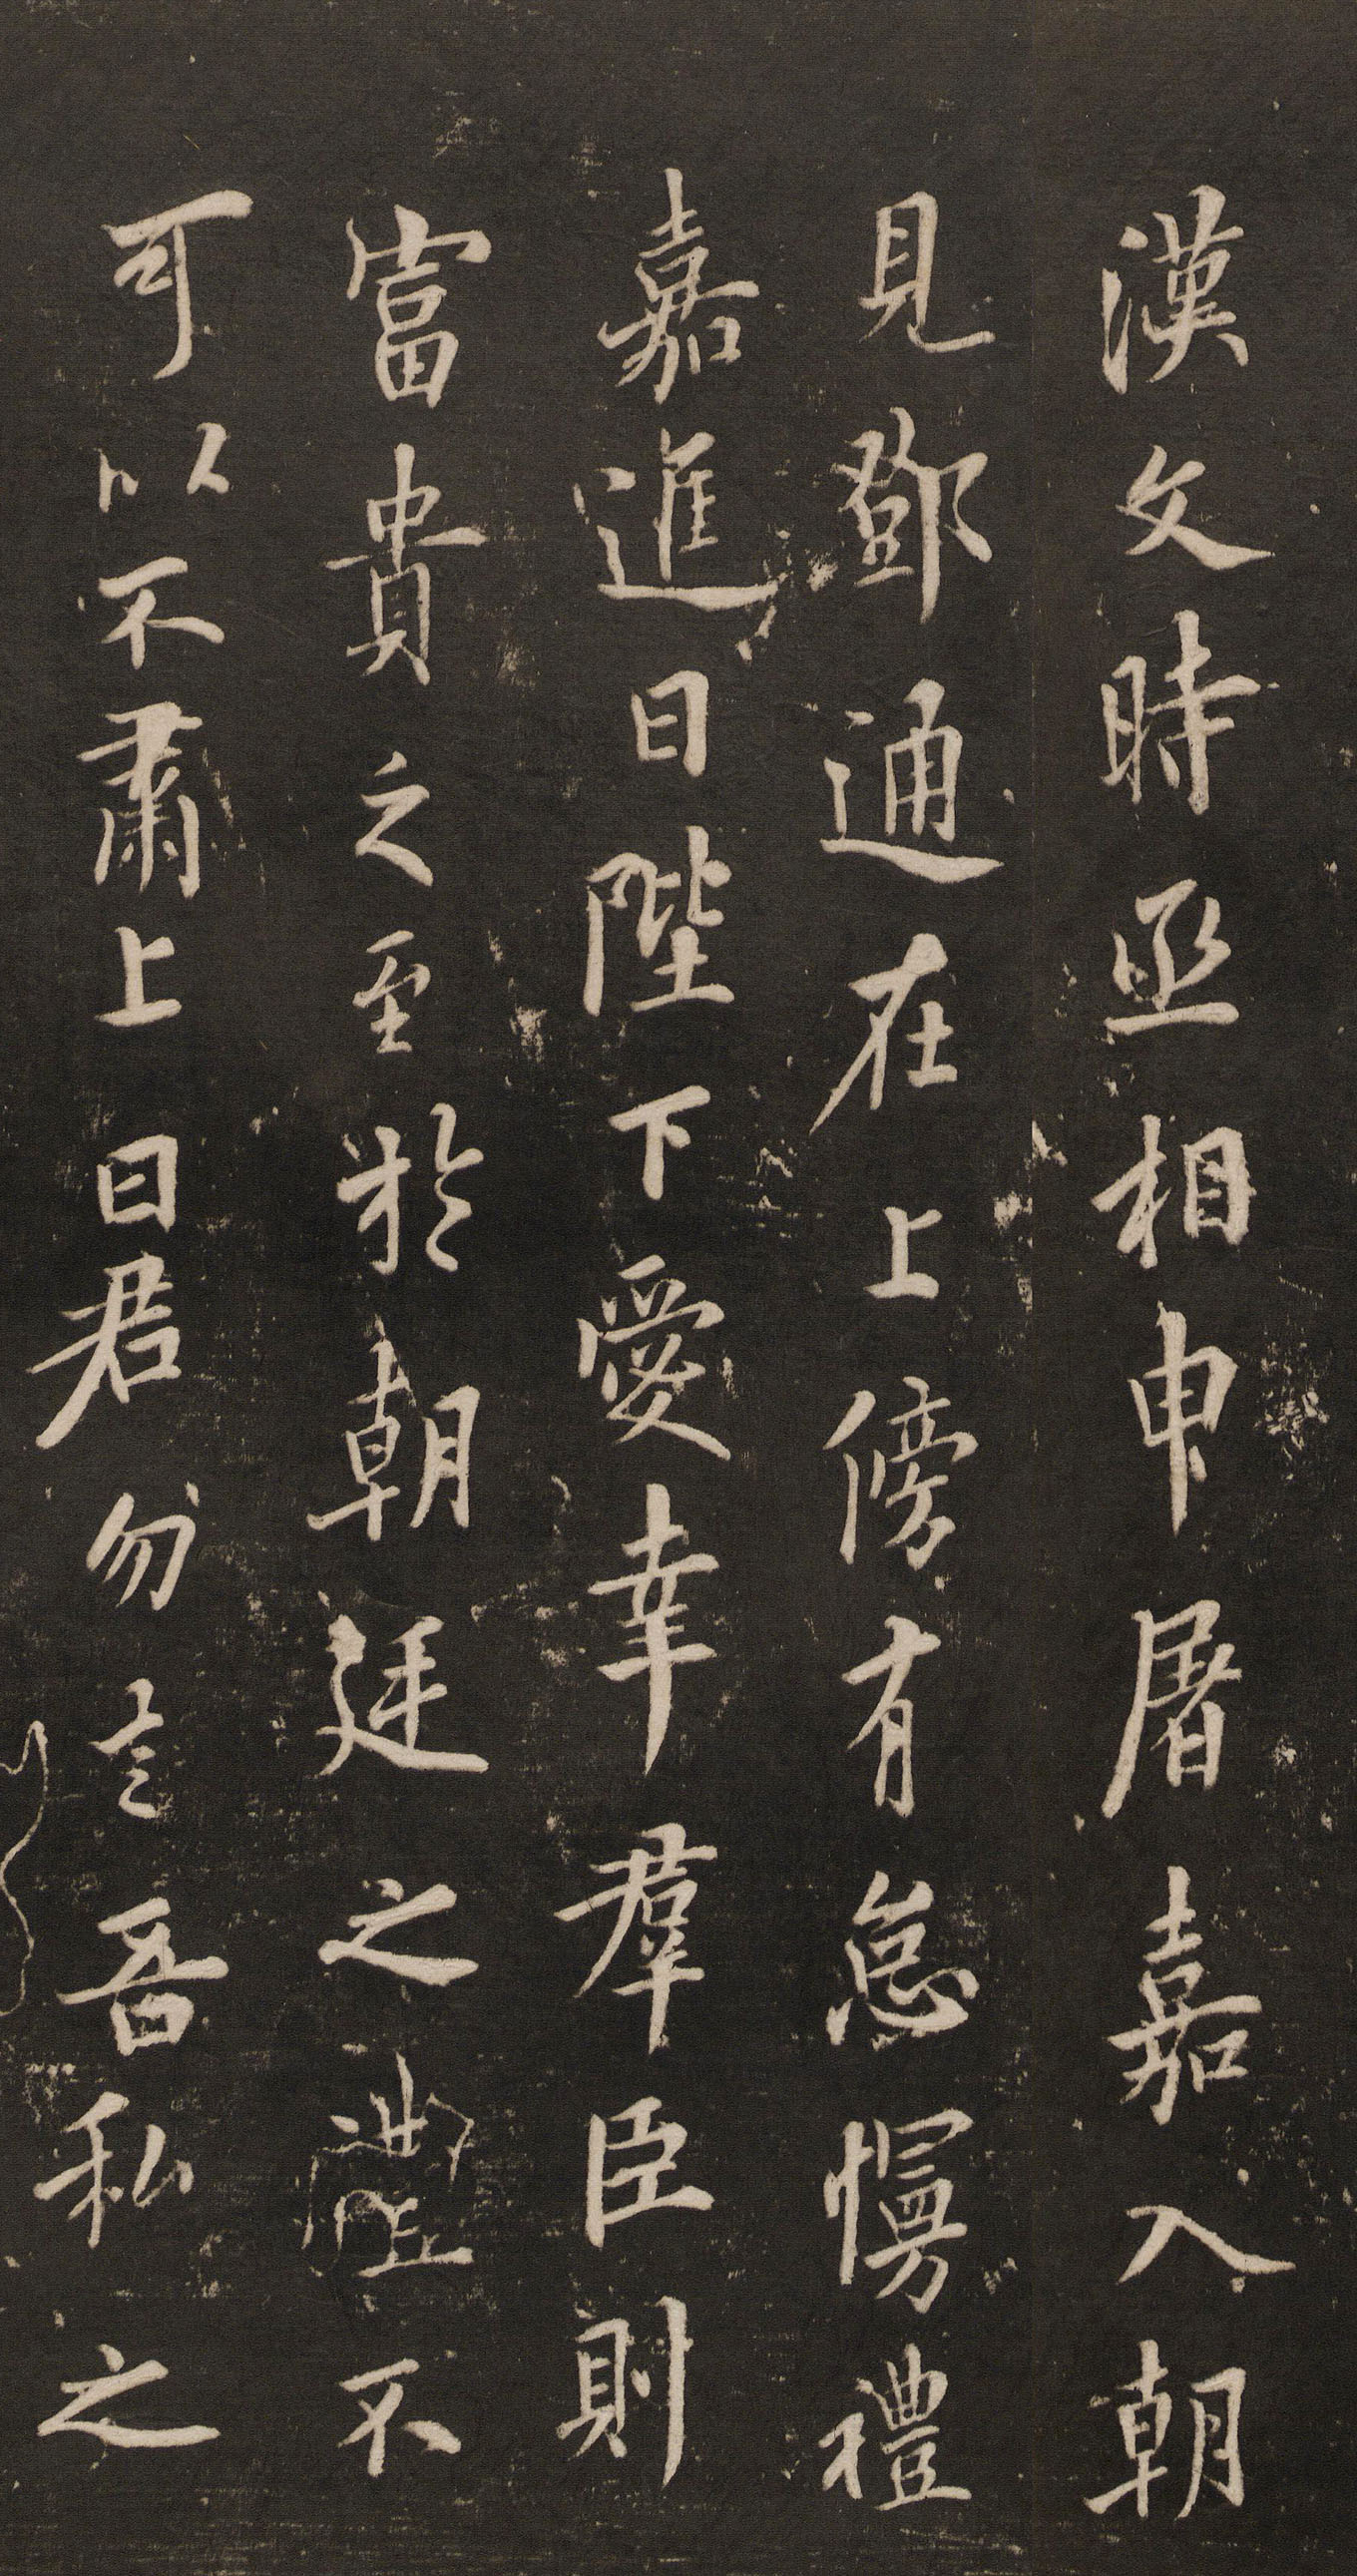 漢文時丞相申屠嘉入朝
見鄧通在上傍有怠慢禮
嘉進曰陛下愛幸羣臣則
富貴之至於朝廷之禮不
可以不肅上曰君勿言吾私之